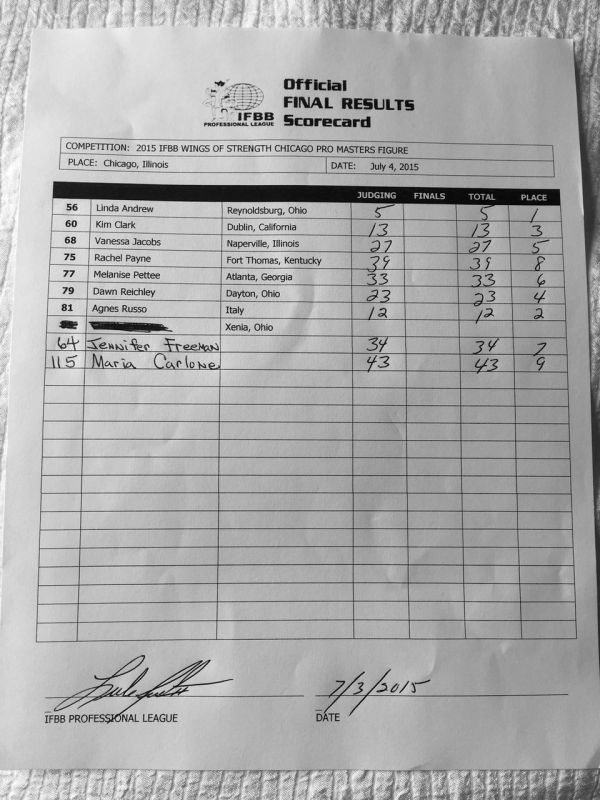 Official
FINAL RESULTS
Scorecard
IFBB
PROFESSIONAL LEAGUE
COMPETITION: 2015 IFBB WINGS OF STRENGTH CHICAGO PRO MASTERS FIGURE
PLACE: Chicago, Illinois DATE: July 4, 2015
JUDGING FINALS TOTAL PLACE
56 Linda Andrew Reynoldsburg, Ohio 5 5 1
60 Kim Clark Dublin, California 13 13 3
68 Vanessa Jacobs Naperville, Illinois 27 27 5
75 Rachel Payne Fort Thomas, Kentucky 39 39 8
77 Melanise Pettee Atlanta, Georgia 33 33 6
79 Dawn Reichley Dayton, Ohio 23 23 4
81 Agnes Russo Italy 12 12 2
Xenia, Ohio
64 Jennifer Freeman 34 34 7
115 Maria Carlone 43 43 9
7/3/2015
IFBB PROFESSIONAL LEAGUE DATE